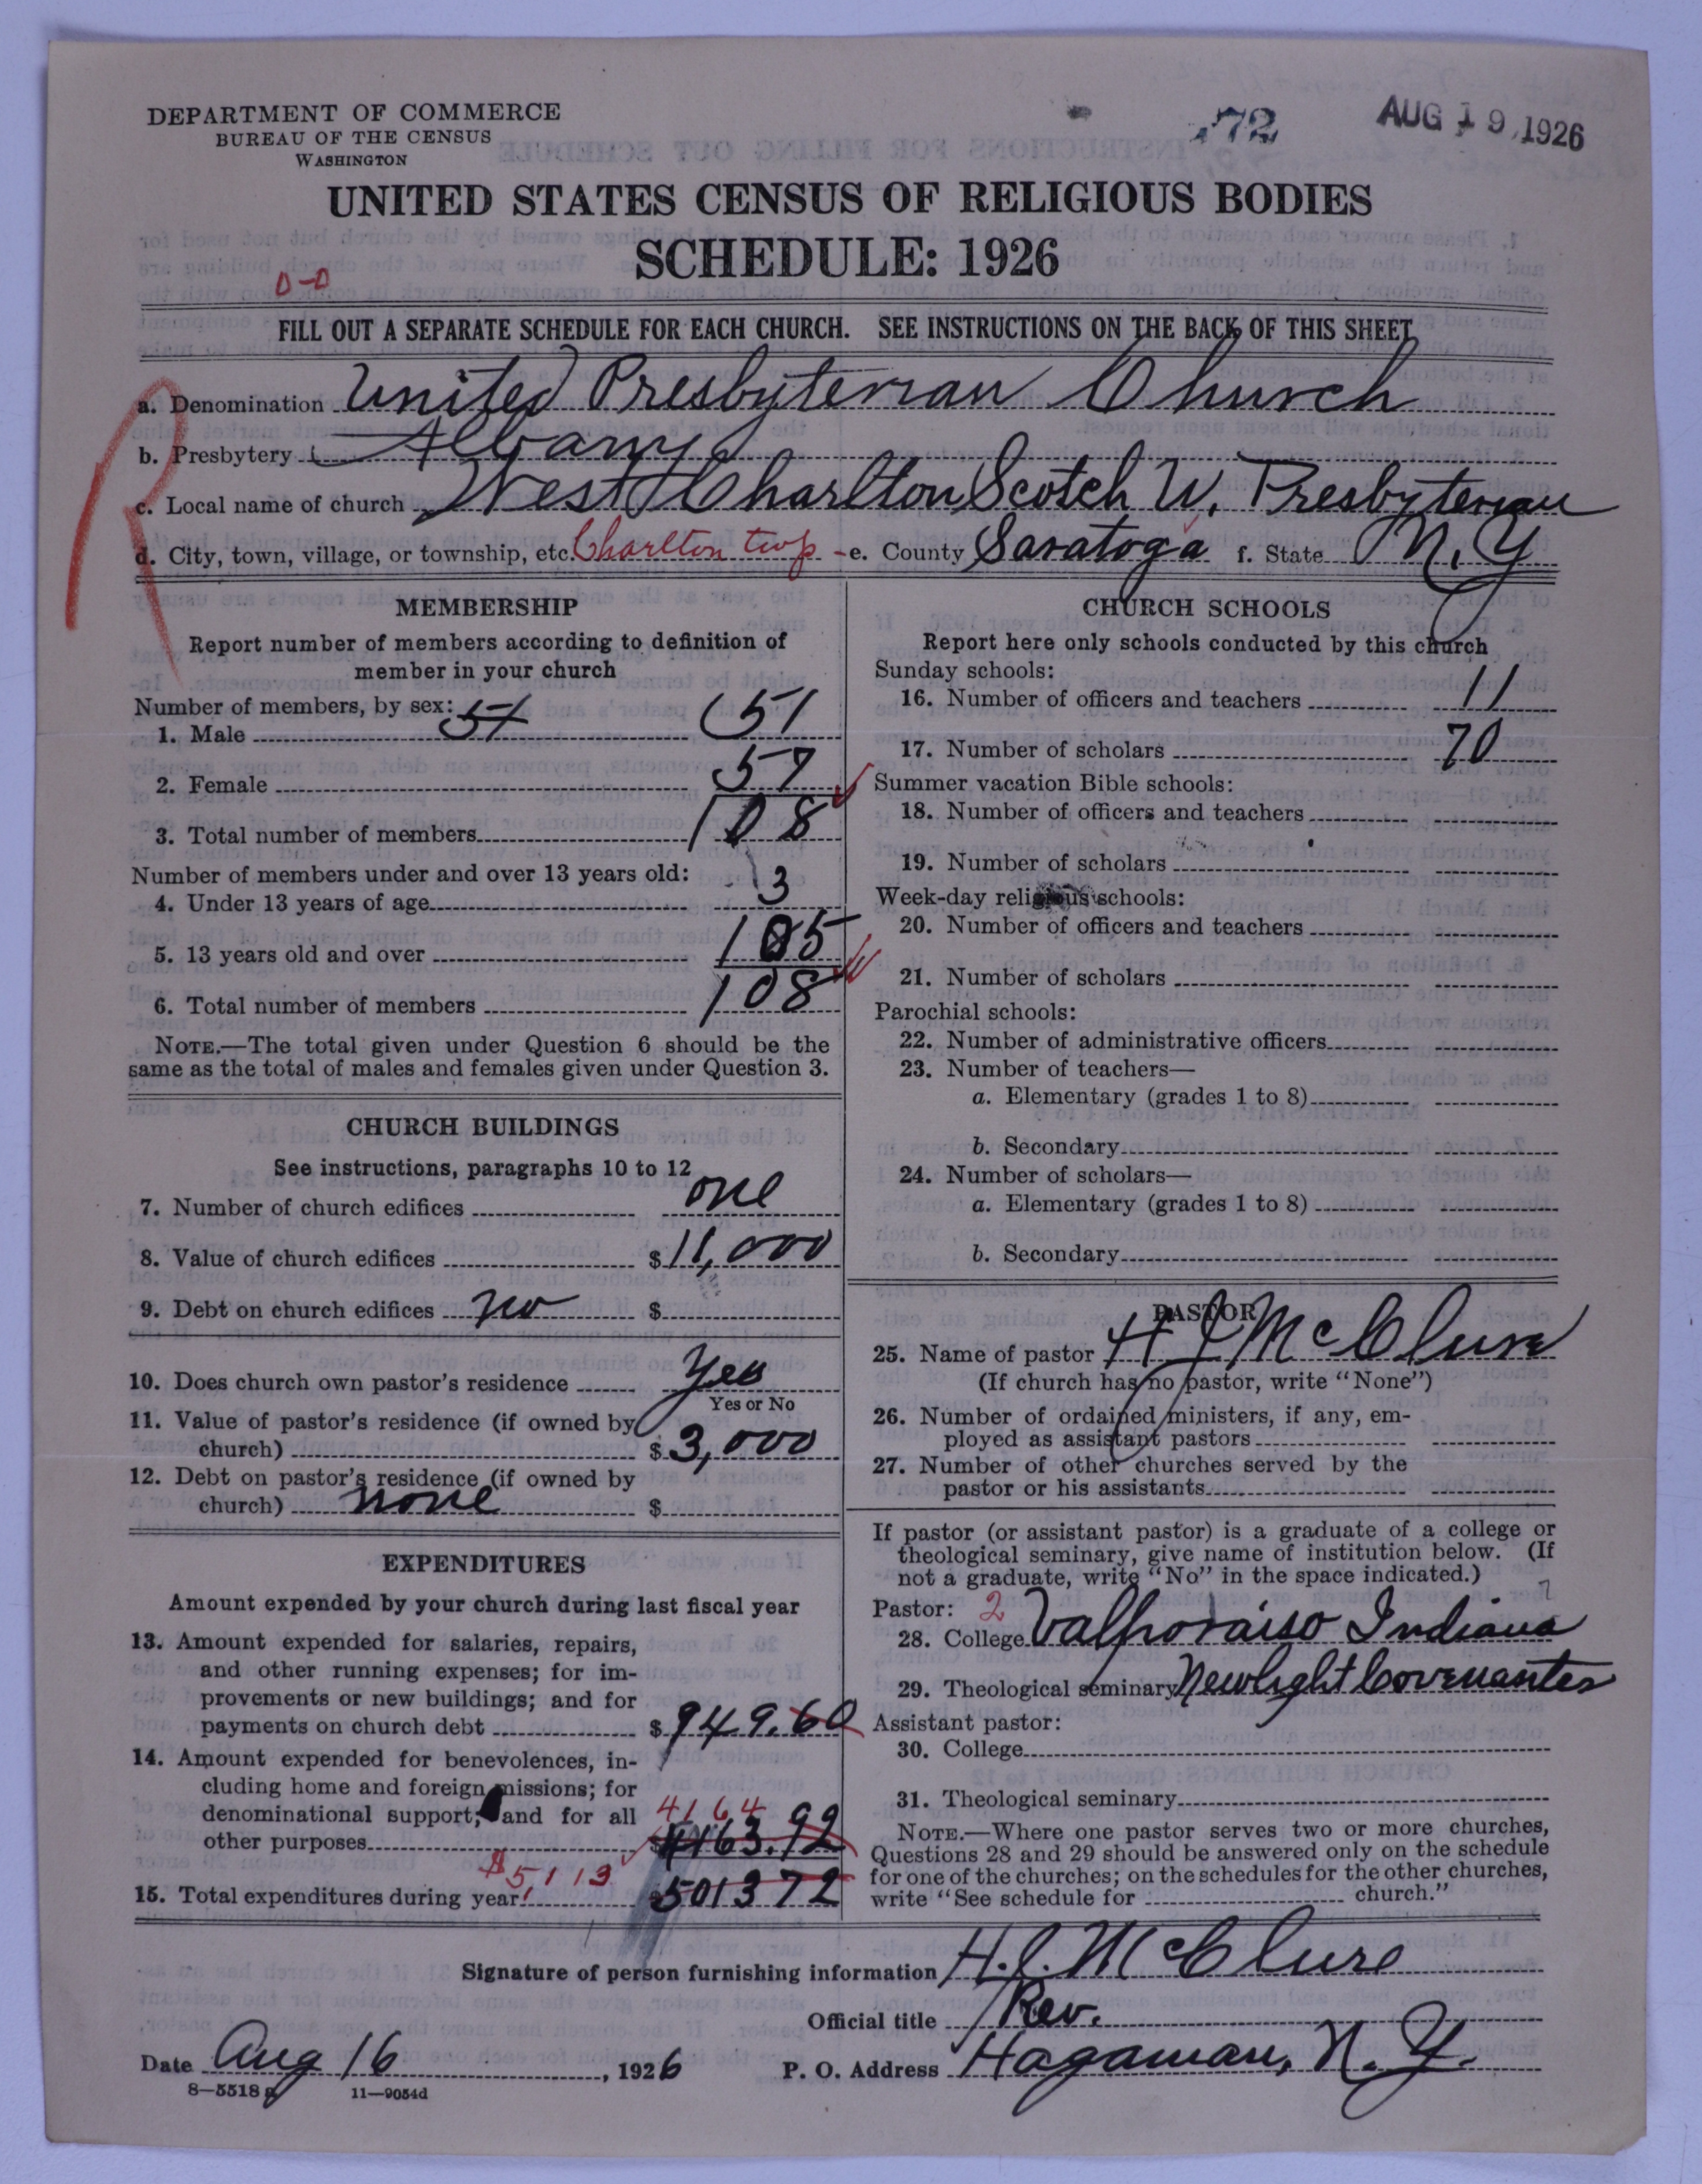 DEPARTMENT OF COMMERCE
BUREAU OF THE CENSUS
WASHINGTON
72
AUG 19 1926
UNITED STATES CENSUS OF RELIGIOUS BODIES
SCHEDULE: 1926
0-0
FILL OUT A SEPARATE SCHEDULE FOR EACH CHURCH. SEE INSTRUCTIONS ON THE BACK OF THIS SHEET
R
a. Denomination United Presbyterian Church
b. Presbytery Albany
c. Local name of church West Charlton Scotch U. Presbyterian
d. City, town, village, or township, etc. Charlton twp - e. County Saratoga f. State N.Y
MEMBERSHIP
Report number of members according to definition of
member in your church
Number of members, by sex: 57
1. Male 51
2. Female 57
3. Total number of members 108
Number of members under and over 13 years old:
4. Under 13 years of age 3
5. 13 years old and over 105
6. Total number of members 108
NOTE.—The total given under Question 6 should be the
same as the total of males and females given under Question 3.
CHURCH BUILDINGS
See instructions, paragraphs 10 to 12
7. Number of church edifices one
8. Value of church edifices $11,000
9. Debt on church edifices no $
10. Does church own pastor's residence Yes
Yes or No
11. Value of pastor's residence (if owned by
church) $3,000
12. Debt on pastor's residence (if owned by
church) none $
EXPENDITURES
Amount expended by your church during last fiscal year
13. Amount expended for salaries, repairs,
and other running expenses; for im-
provements or new buildings; and for
payments on church debt $949.60
14. Amount expended for benevolences, in-
cluding home and foreign missions; for
denominational support; and for all 4164
other purposes 4163.92
$5113
15. Total expenditures during year 501372
CHURCH SCHOOLS
Report here only schools conducted by this church
Sunday schools:
16. Number of officers and teachers 11
17. Number of scholars 70
Summer vacation Bible schools:
18. Number of officers and teachers
19. Number of scholars
Week-day religious schools:
20. Number of officers and teachers
21. Number of scholars
Parochial schools:
22. Number of administrative officers
23. Number of teachers—
a. Elementary (grades 1 to 8)
b. Secondary
24. Number of scholars—
a. Elementary (grades 1 to 8)
b. Secondary
PASTOR
25. Name of pastor H J McClure
(If church has no pastor, write "None")
26. Number of ordained ministers, if any, em-
ployed as assistant pastors
27. Number of other churches served by the
pastor or his assistants
If pastor (or assistant pastor) is a graduate of a college or
theological seminary, give name of institution below. (If
not a graduate, write "No" in the space indicated.)
Pastor: 2
28. College Valporaiso Indiana
29. Theological seminary Newlight Covenanter
Assistant pastor:
30. College
31. Theological seminary
NOTE.—Where one pastor serves two or more churches,
Questions 28 and 29 should be answered only on the schedule
for one of the churches; on the schedules for the other churches,
write "See schedule for church."
Signature of person furnishing information H. J. McClure
Official title Rev.
Date Aug 16, 1926 P. O. Address Hagaman, N. Y.
8—5518a 11—9054d